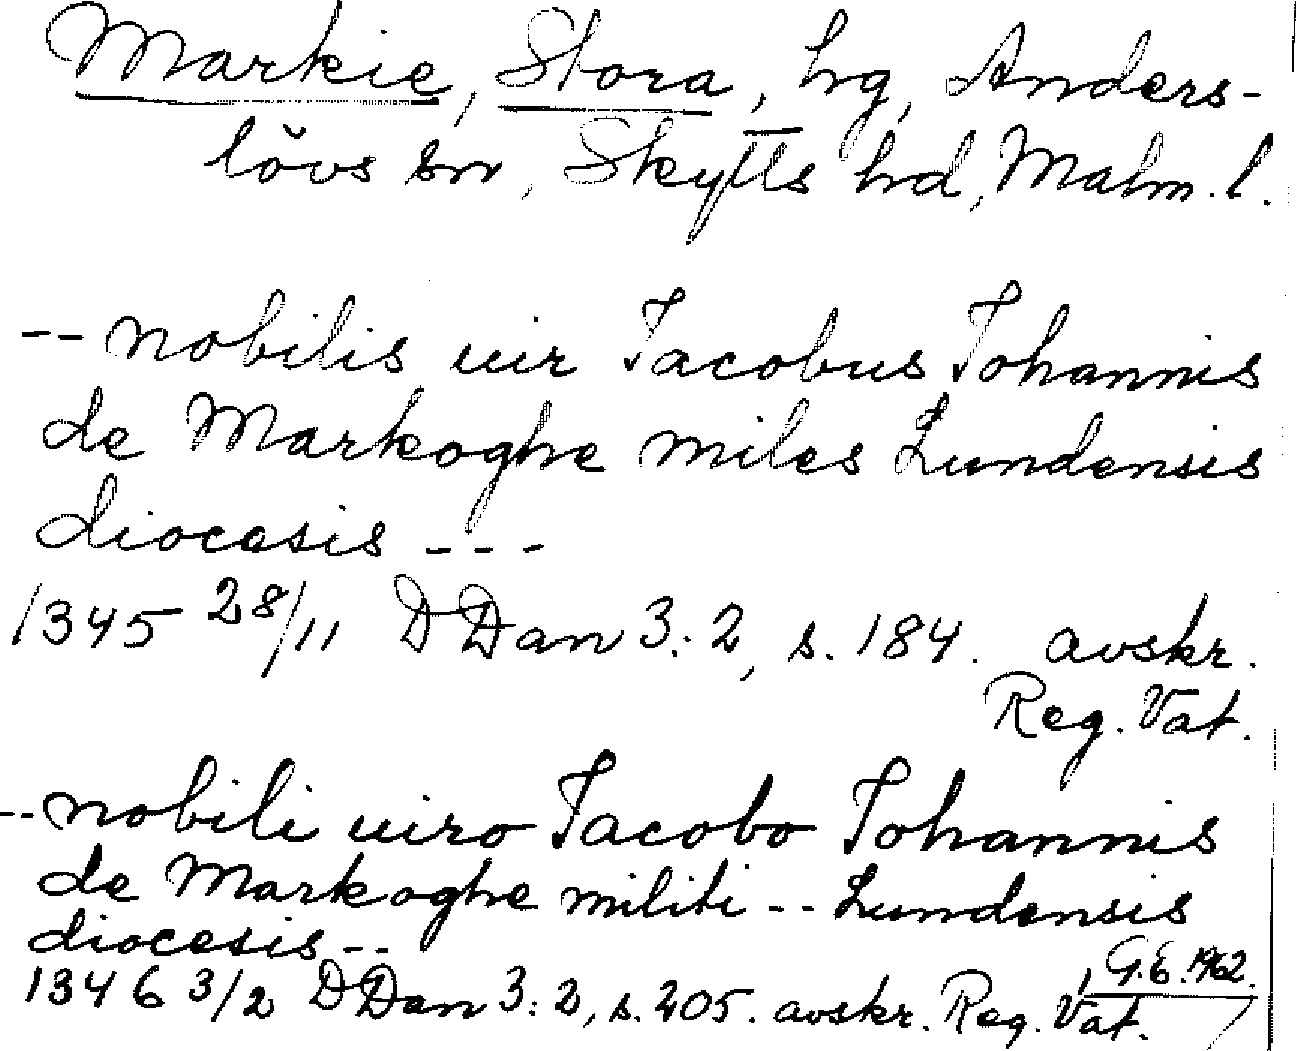 Markie, Stora, hg, Anders-
lövs sn, Skytts hd, Malm. l.
-- nobilis uir Jacobus Johannis
de Markoghe miles Lundensis
diocesis ---
1345 28/11 DDan 3:2, s. 184. avskr.
Reg. Vat.
-- nobili uiro Jacobo Johannis
de Markoghe militi -- Lundensis
diocesis --
1346 3/2 DDan 3:2, s. 205. avskr. Reg. Vat.
G.E. 1962.